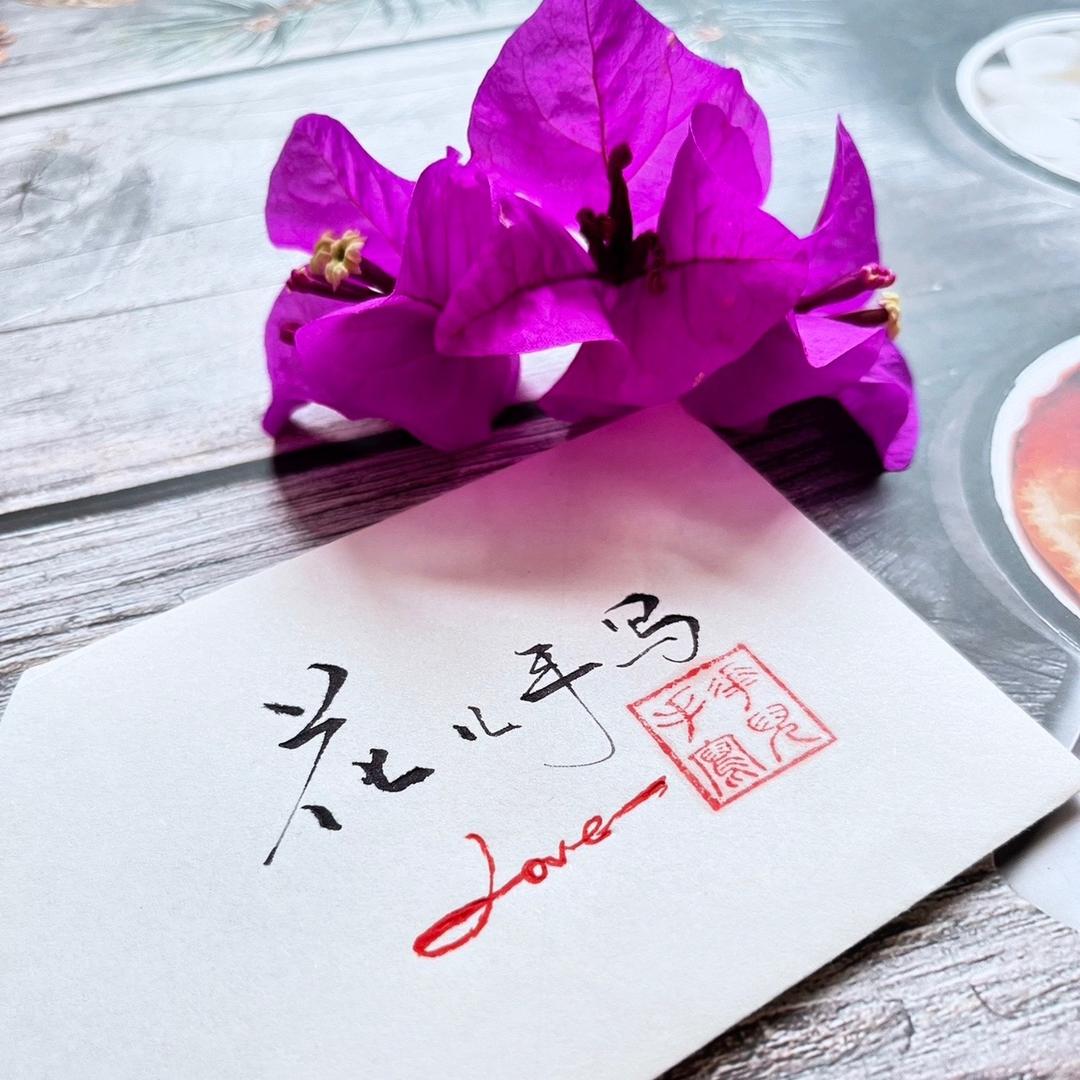 花儿手写
Love